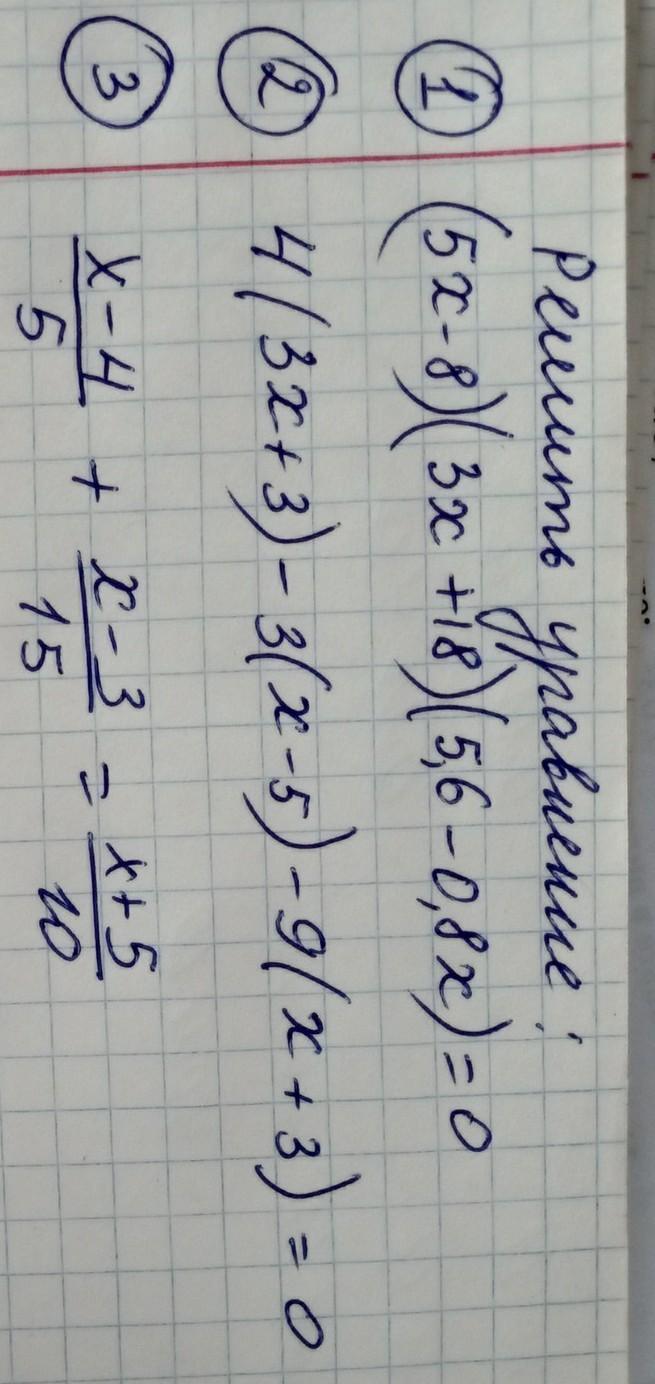 Решить уравнение:
① (5x-8)(3x+18)(5,6-0,8x)=0
② 4(3x+3)-3(x-5)-9(x+3)=0
③ x-4/5 + x-3/15 = x+5/10